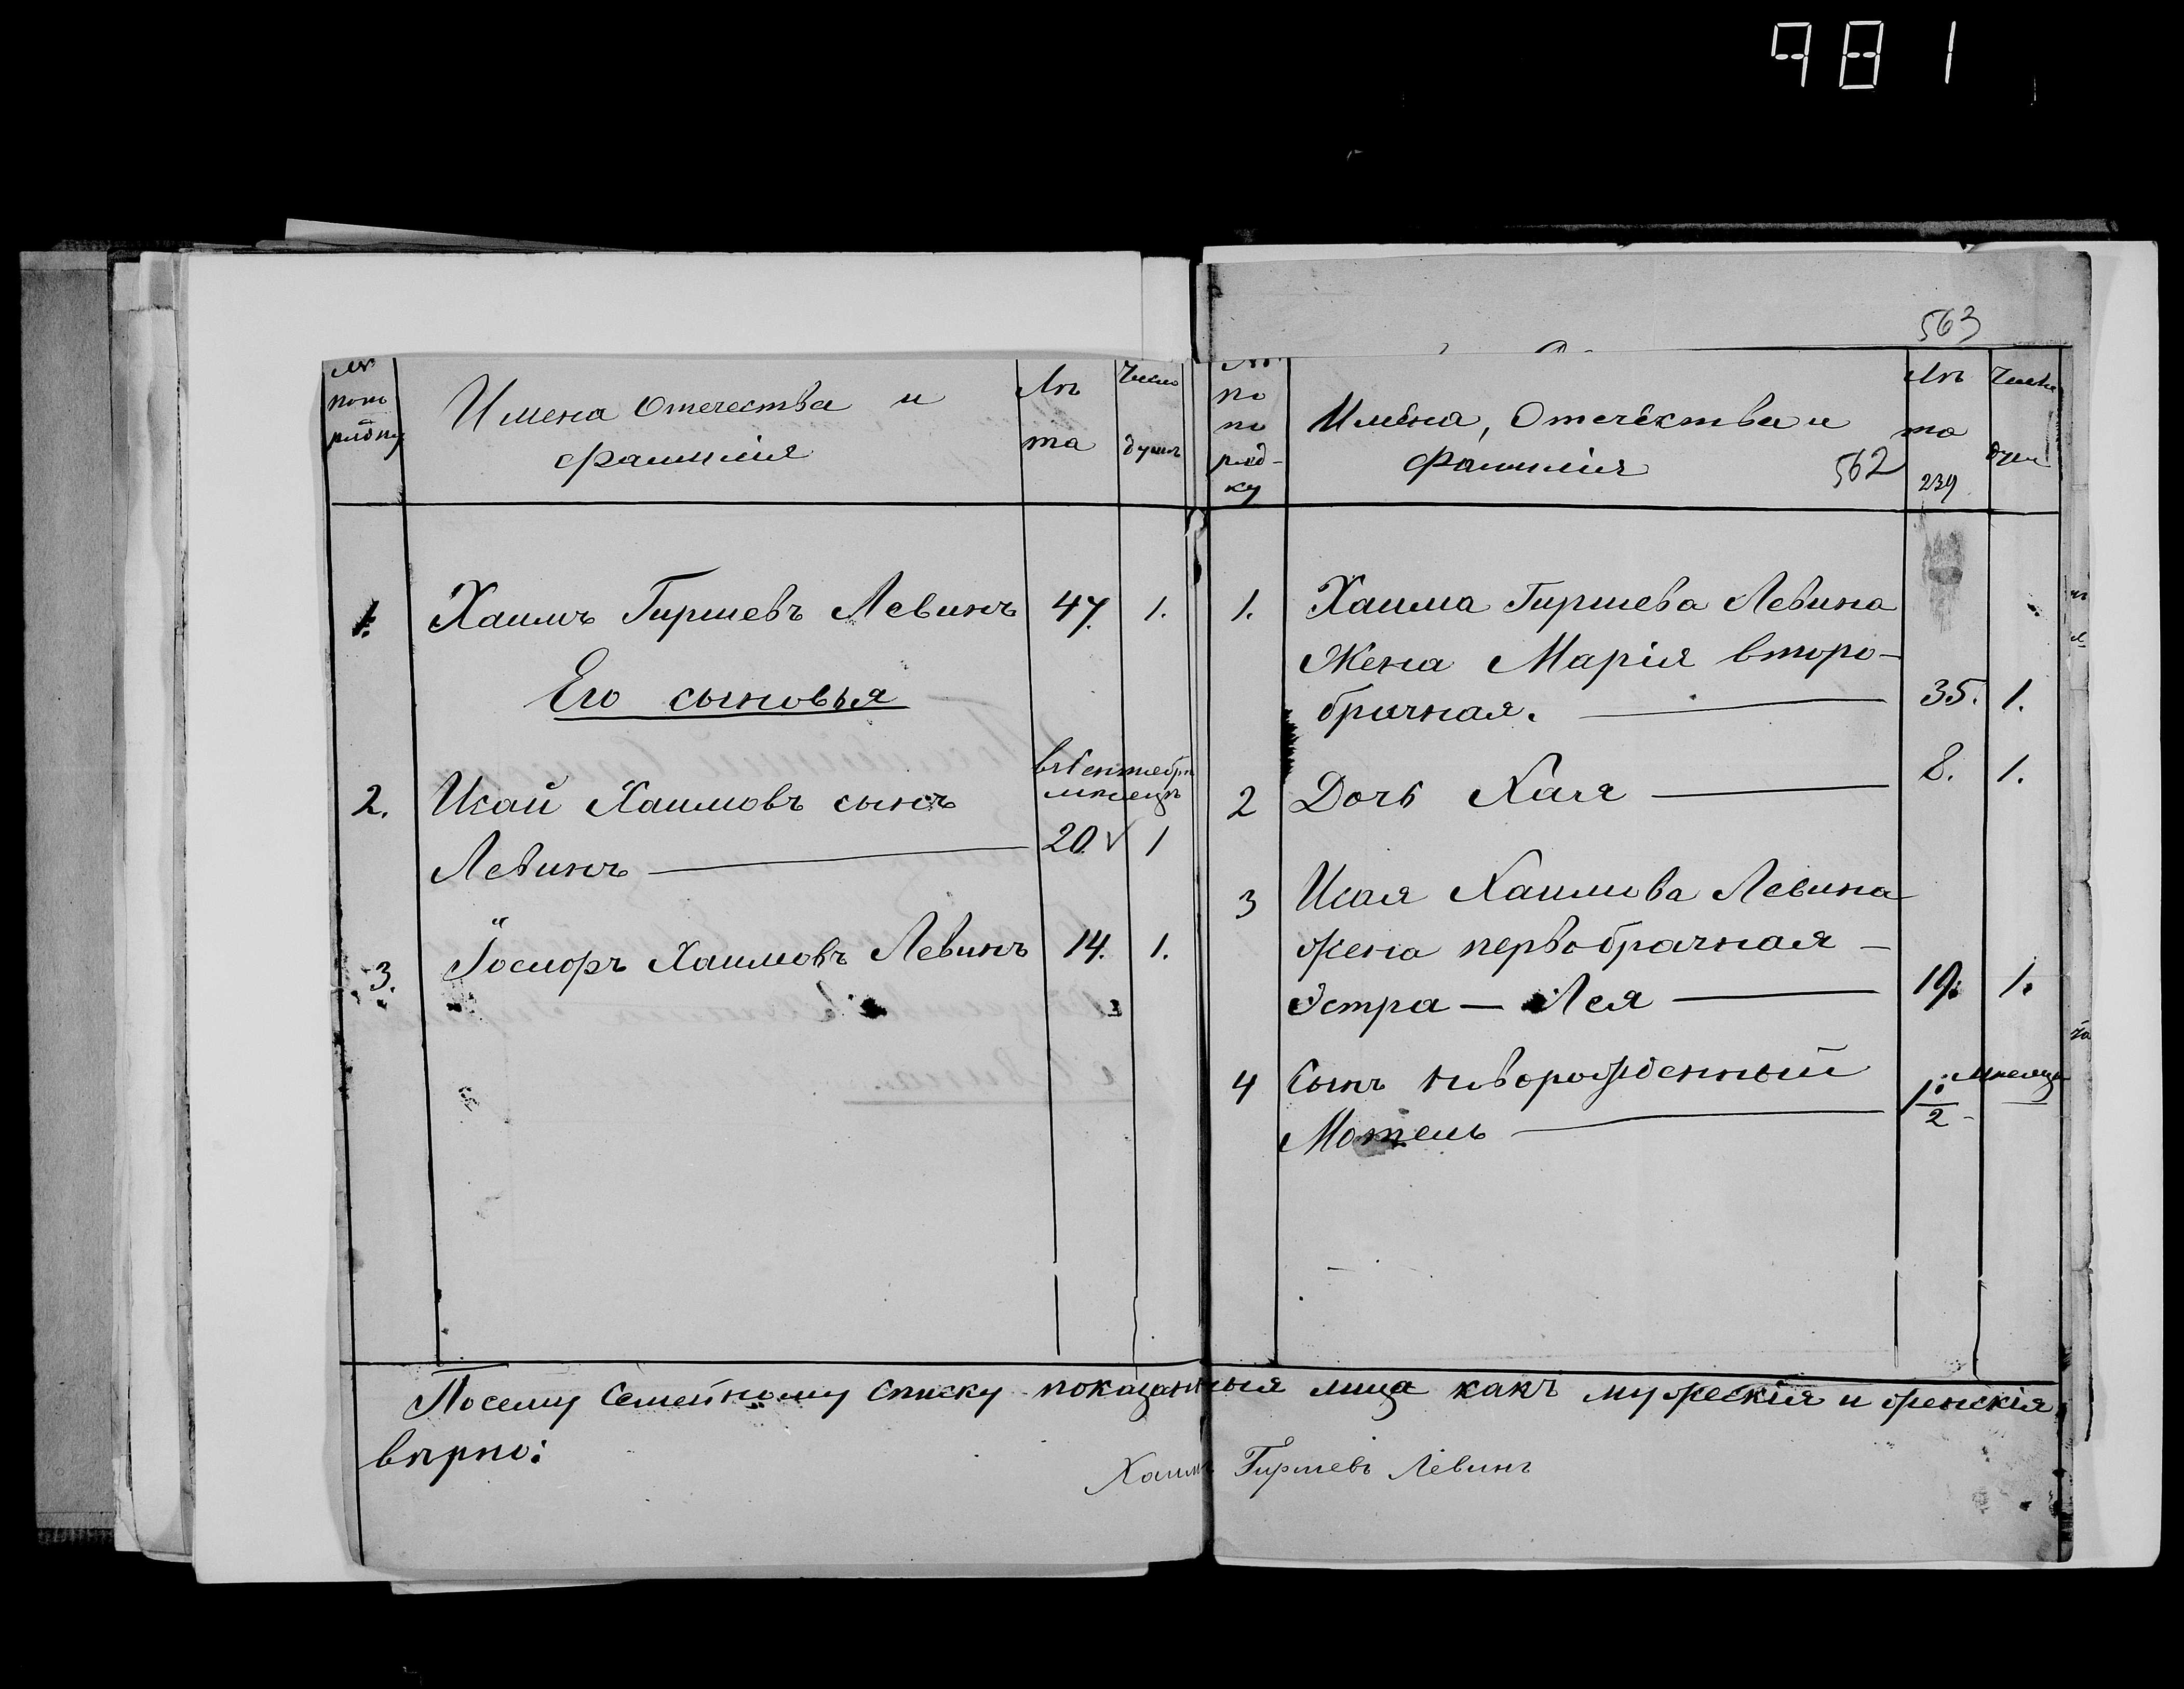 981
563
№ по по рядку
Имена Отечества и фамилія
Лѣ та
Число душъ
1. Хаимъ Гиршевъ Левинъ 47. 1.
Его сыновья
въ Сентябрѣ мѣсяцѣ
2. Исай Хаимовъ сынъ
Левинъ — 20 √ 1
3. Іосифъ Хаимовъ Левинъ 14. 1.
3
№ по по ряд- ку
Имена, Отечества и фамилія
562
Лѣ та
239
Число душ
1. Хаима Гиршева Левина
Жена Марія второ-
брачная. — 35. 1.
2 Дочь Хая — 8. 1.
3 Исая Хаимова Левина
жена первобрачная —
Эстра — Лея — 19. 1.
4 Сынъ новорожденный
Мотель — 1/2 мѣсяца
Посему Семейному Списку показанныя лица какъ мужескія и женскія
вѣрно:
Хаимъ Гиршевъ Левинъ